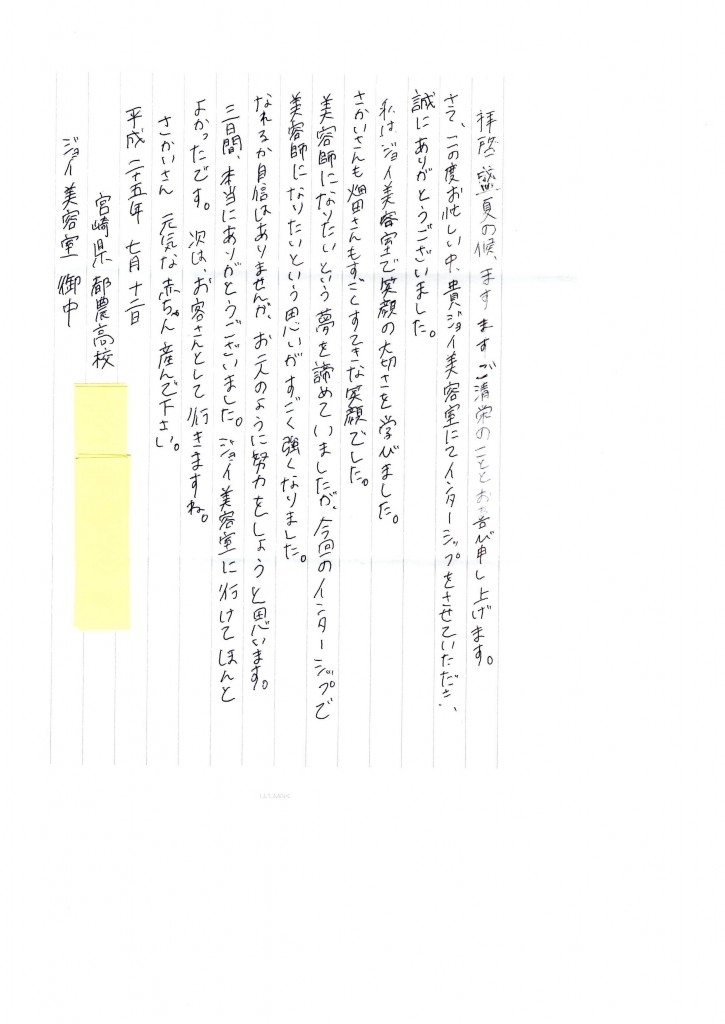 拝啓 盛夏の候、ますますご清栄のこととお喜び申し上げます。
さて、この度お忙しい中、貴ジョイ美容室にてインターンシップをさせていただき、
誠にありがとうございました。
私はジョイ美容室で笑顔の大切さを学びました。
さかいさんも畑田さんもすごくすてきな笑顔でした。
美容師になりたいという夢を諦めていましたが、今回のインターンシップで
美容師になりたいという思いがすごく強くなりました。
なれるか自信はありませんが、お二人のように努力をしようと思います。
三日間、本当にありがとうございました。ジョイ美容室に行けてほんと
よかったです。次は、お客さんとして行きますね。
さかいさん 元気な赤ちゃん産んで下さい。
平成 二十五年 七月 十二日
宮崎県 都農高校
ジョイ美容室 御中